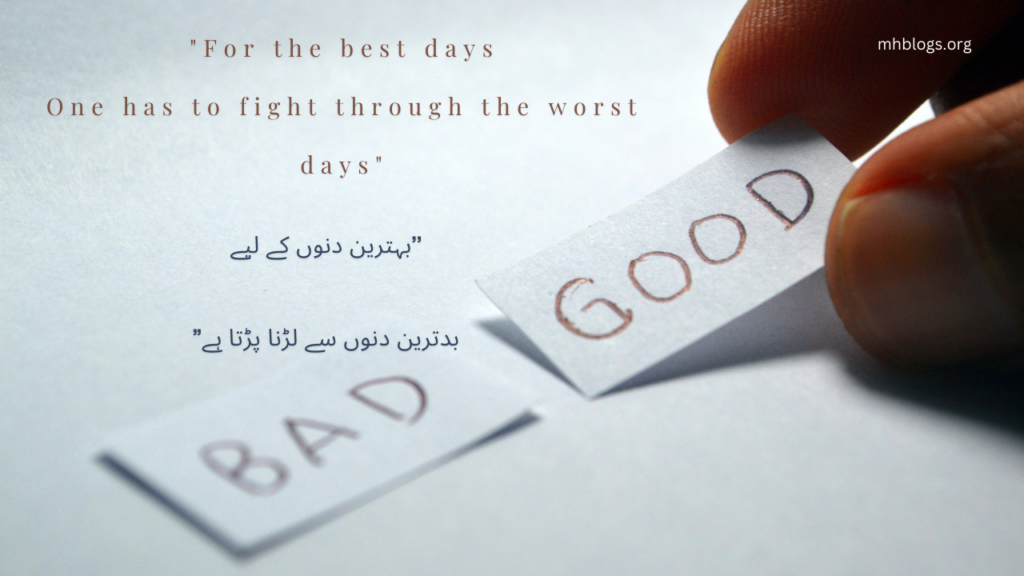 mhblogs.org
"For the best days
One has to fight through the worst
days"
”بہترین دنوں کے لیے
بدترین دنوں سے لڑنا پڑتا ہے”
GOOD
BAD